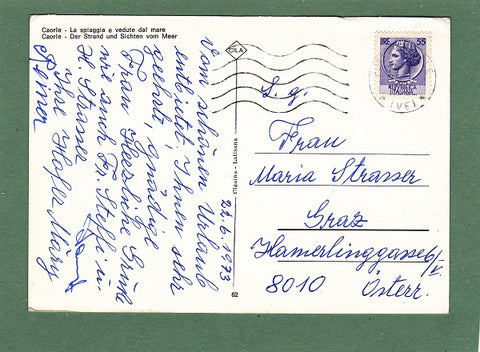 Caorle - La spiaggia e vedute dal mare
Caorle - Der Strand und Sichten vom Meer
CILA
LIRE 55
(VE)
22.6.1973
Vom schönen Urlaub
entbietet Ihnen sehr
geehrte, gnädige
Frau herzliche Grüße
wie auch Fr. Steffi u.
H. Strasser
Ihre Hofer Mary
Reiner
S. g.
Frau
Maria Strasser
Graz
Hamerlinggasse 6/
8010 Österr.
62